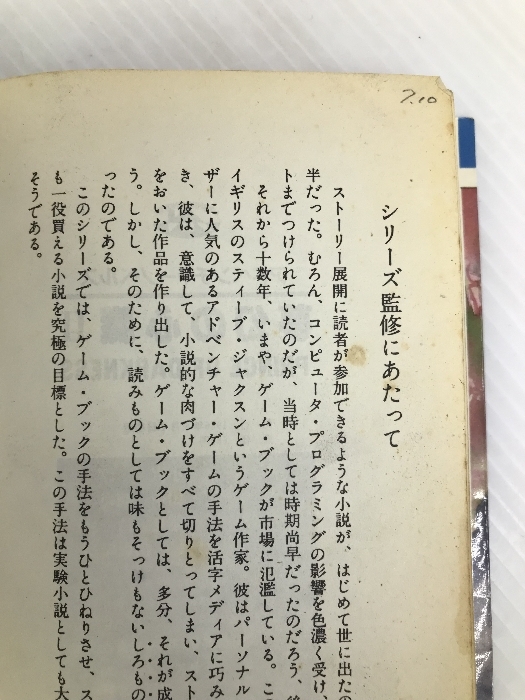 7.10
シリーズ監修にあたって
ストーリー展開に読者が参加できるような小説が、はじめて世に出たの
半だった。むろん、コンピュータ・プログラミングの影響を色濃く受け、
トまでつけられていたのだが、当時としては時期尚早だったのだろう、
それから十数年、いまや、ゲーム・ブックが市場に氾濫している。こ
イギリスのスティーブ・ジャクスンというゲーム作家。彼はパーソナル
ザーに人気のあるアドベンチャー・ゲームの手法を活字メディアに巧み
き、彼は、意識して、小説的な肉づけをすべて切りとってしまい、スト
をおいた作品を作り出した。ゲーム・ブックとしては、多分、それが成
う。しかし、そのために、読みものとしては味もそっけもないしろもの
ったのである。
このシリーズでは、ゲーム・ブックの手法をもうひとひねりさせ、ス
も一役買える小説を究極の目標とした。この手法は実験小説としても大
そうである。